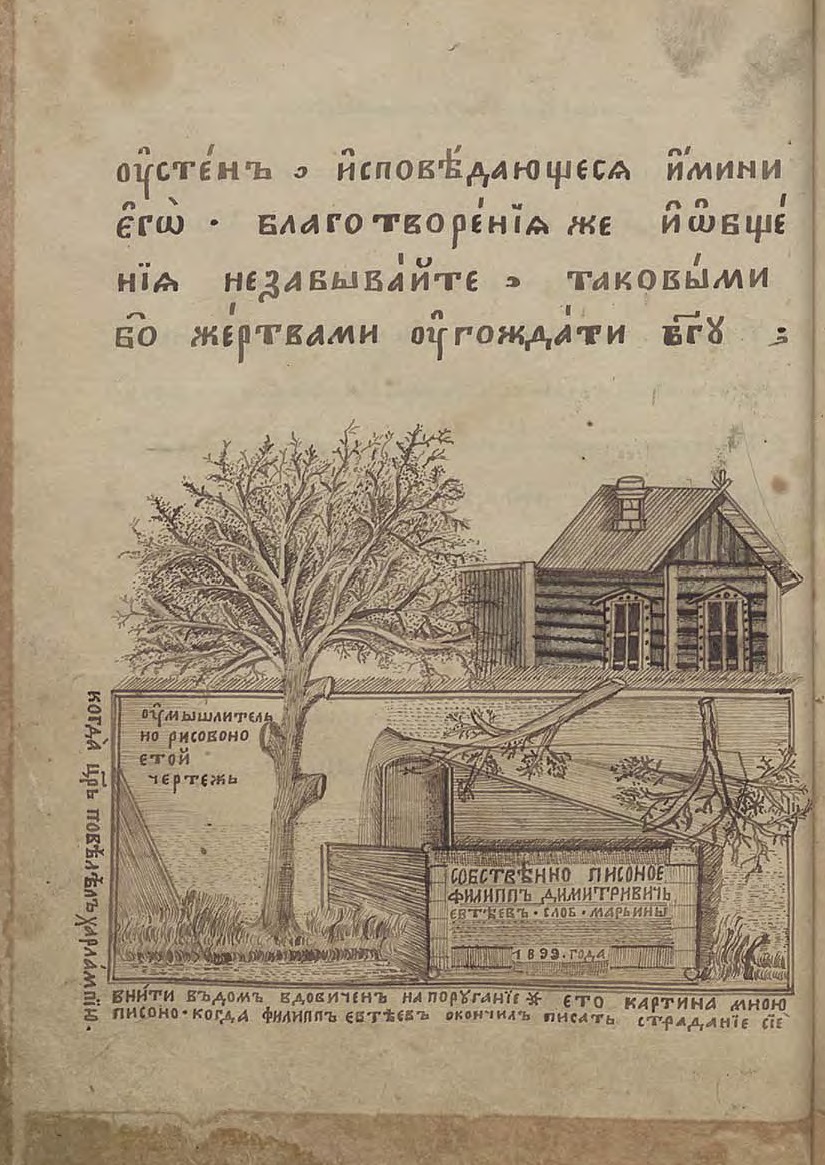 ᲂу҆стéнъ , и҆сповѣ́дающесѧ и҆́мини
є҆гѡ̀ · благотворе́нїѧ же и҆ ѡ҆бще́
нїѧ незабыва́йте , таковы́ми
бо̑ же́ртвами ᲂу҆гожда́ти бг҃ꙋ ;
ᲂу҆мышлитель
но рисовоно
етой
чертежь
собствѣнно писоное
филиппъ димитривичь
евтѣевъ · слоб · марьины
1899 · года
когда̀ цр҃ь повѣлѣлъ харла́мпїю ·
вни́ти въдомъ вдовиченъ напорꙋганїе ※ ето картина мною
писоно · когда филиппъ евтѣевъ окончилъ писать страданїе сїе